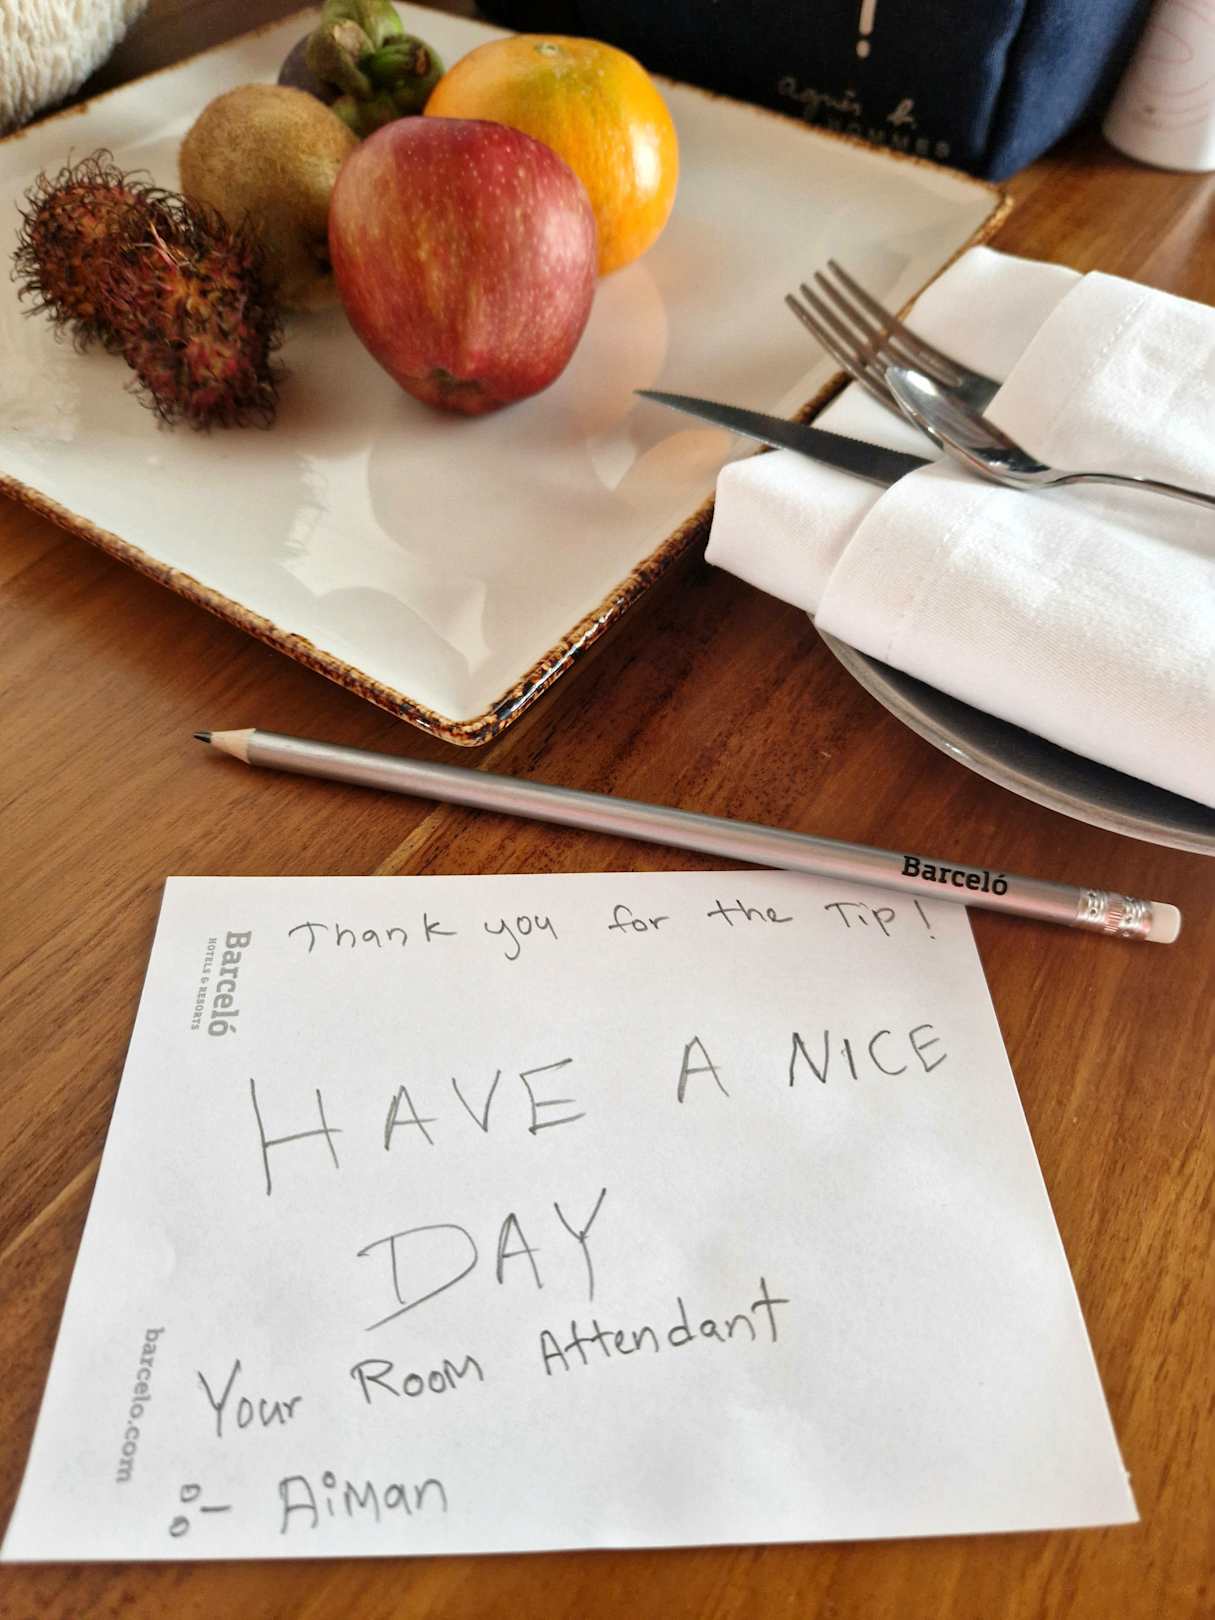 agnès b.
HOMMES
Barceló
Thank you for the Tip!
Barceló
HOTELS & RESORTS
HAVE A NICE
DAY
Your Room Attendant
:- Aiman
barcelo.com